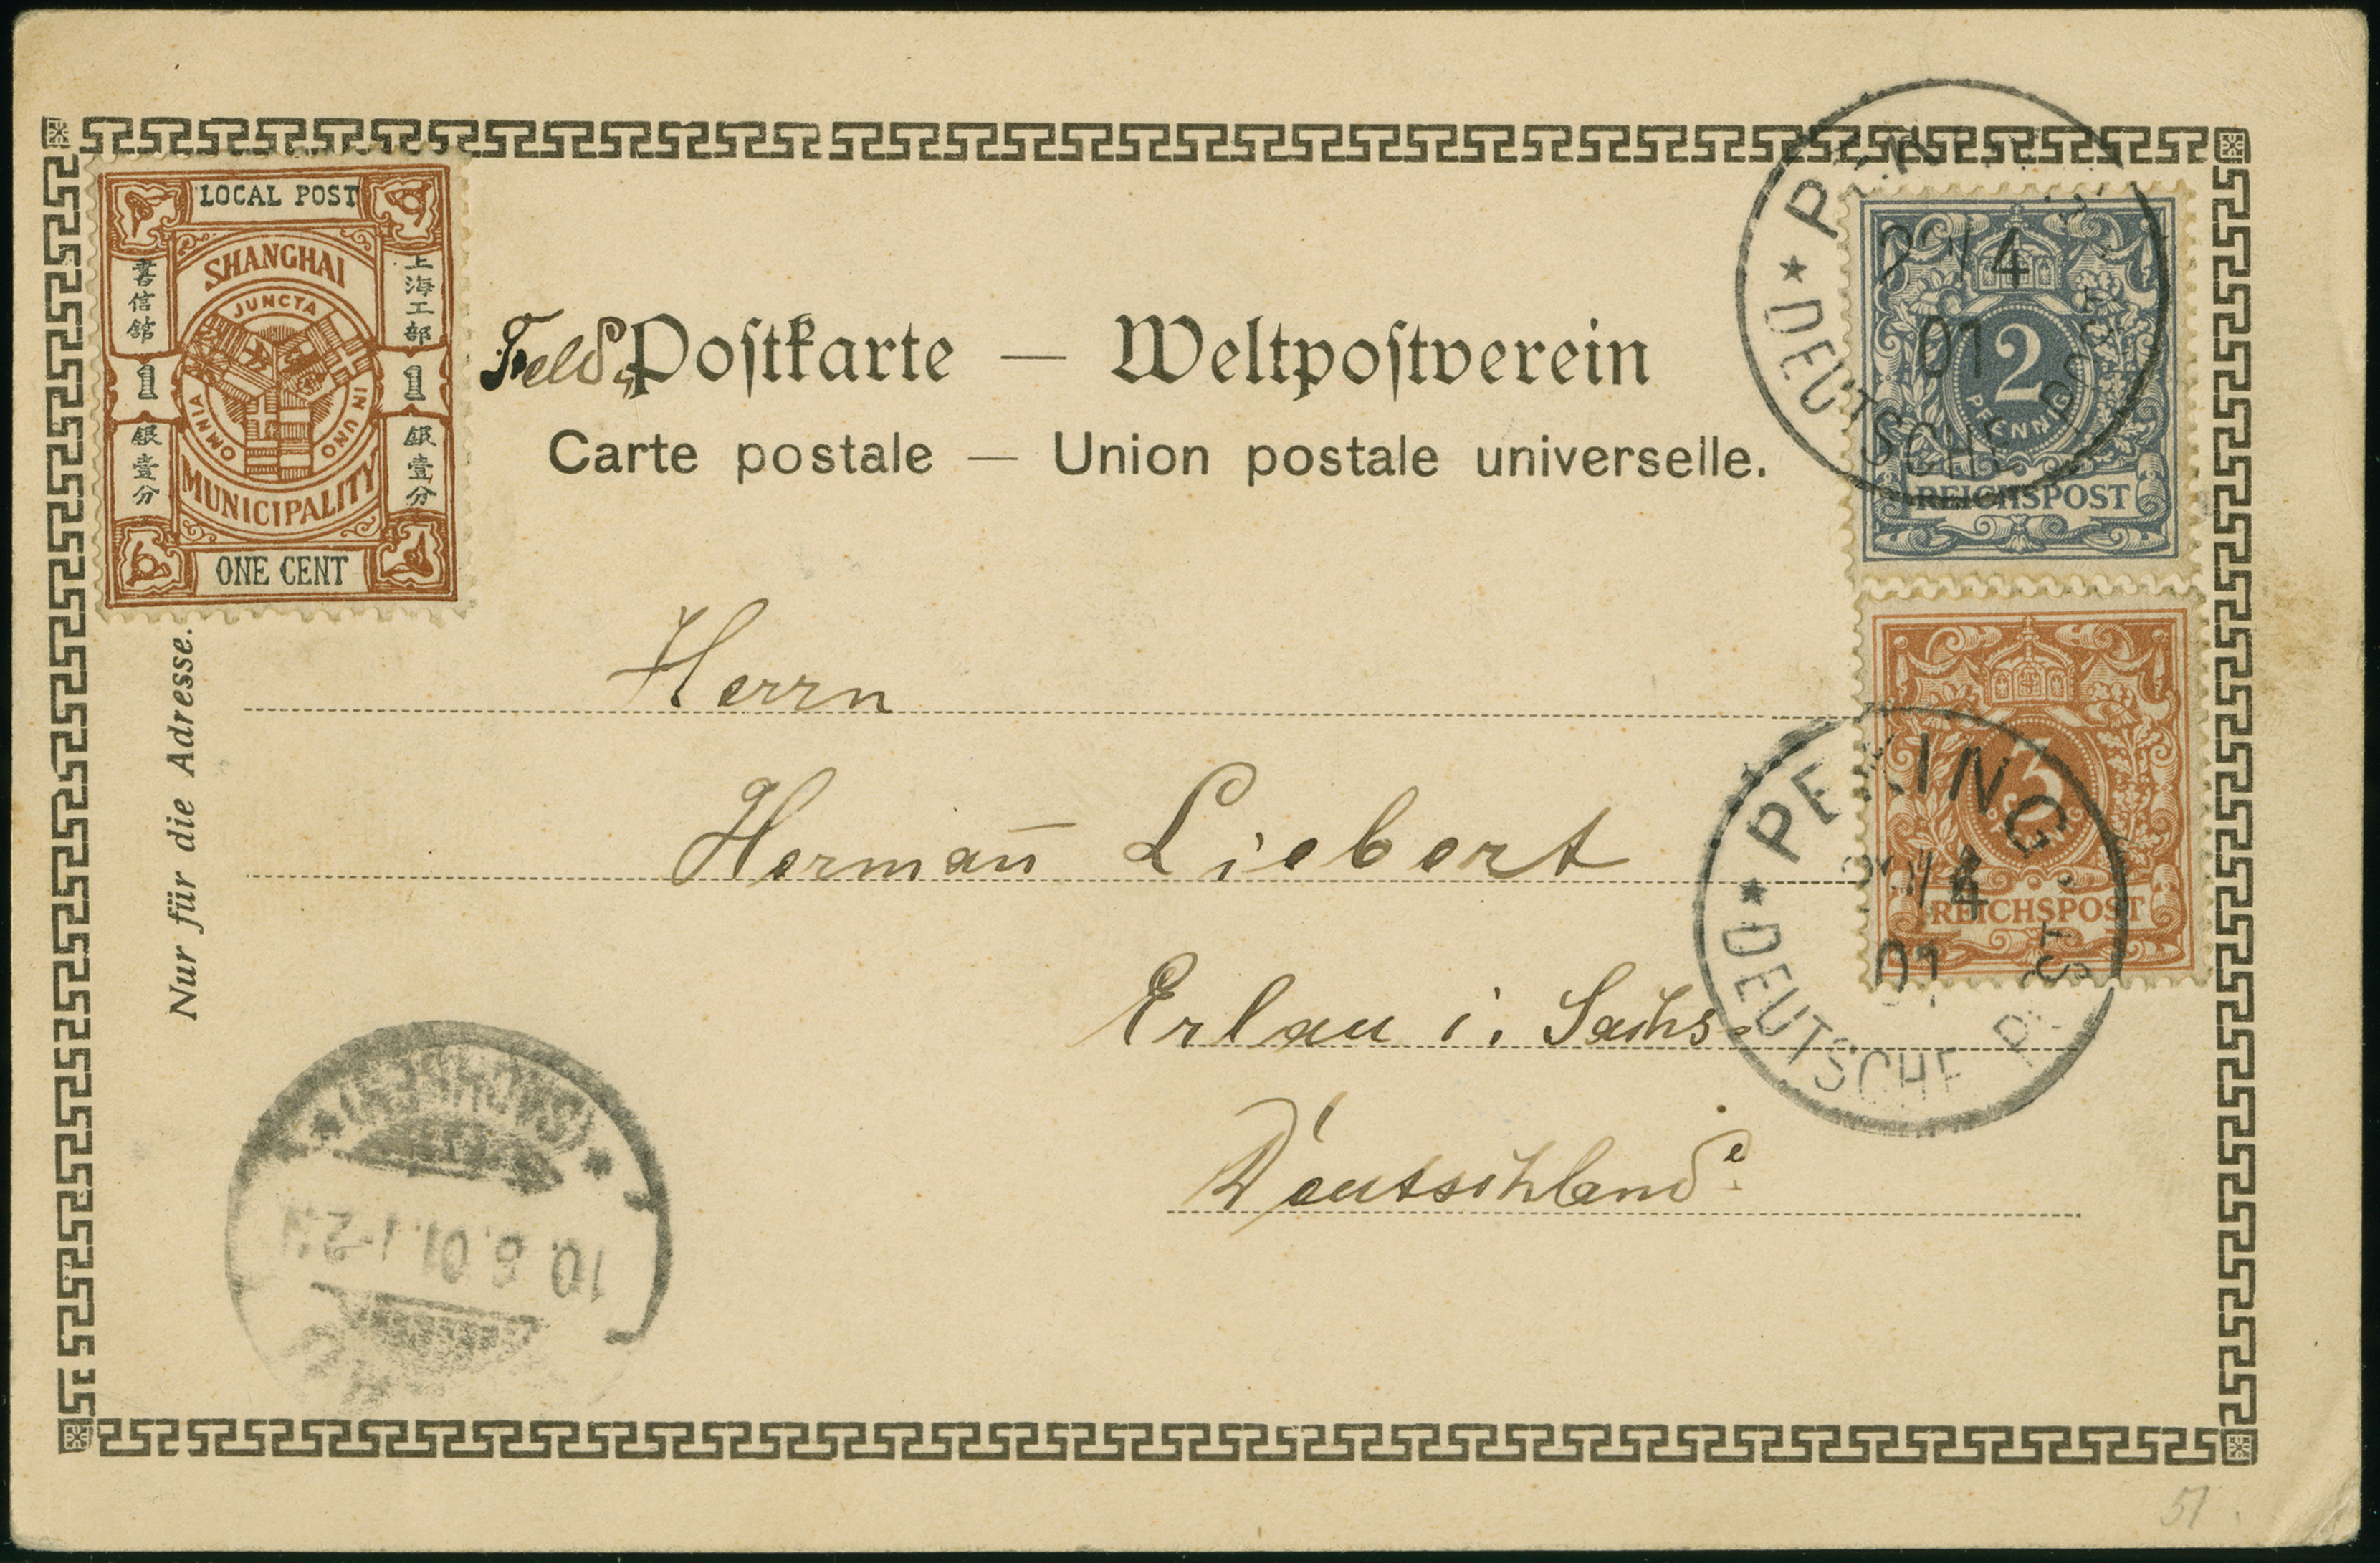 LOCAL POST
SHANGHAI
JUNCTA IN UNO OMNIA
MUNICIPALITY
上海工部
書信館
1
1
銀壹分
銀壹分
ONE CENT
Feld-Postkarte — Weltpostverein
Carte postale — Union postale universelle.
2
PFENNIG
REICHSPOST
PEKING
4
01
DEUTSCHE POST
3
PFENNIG
REICHSPOST
PEKING
4
01
DEUTSCHE POST
Nur für die Adresse.
Herrn
Herman̄ Liebert
Erlau i. Sachs.
Deutschland.
10.6.01.1-2N
51